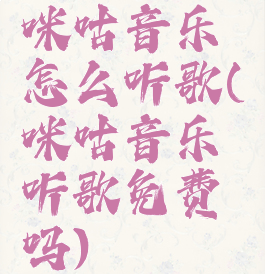 咪咕音乐
怎么听歌(
咪咕音乐
听歌免费
吗)